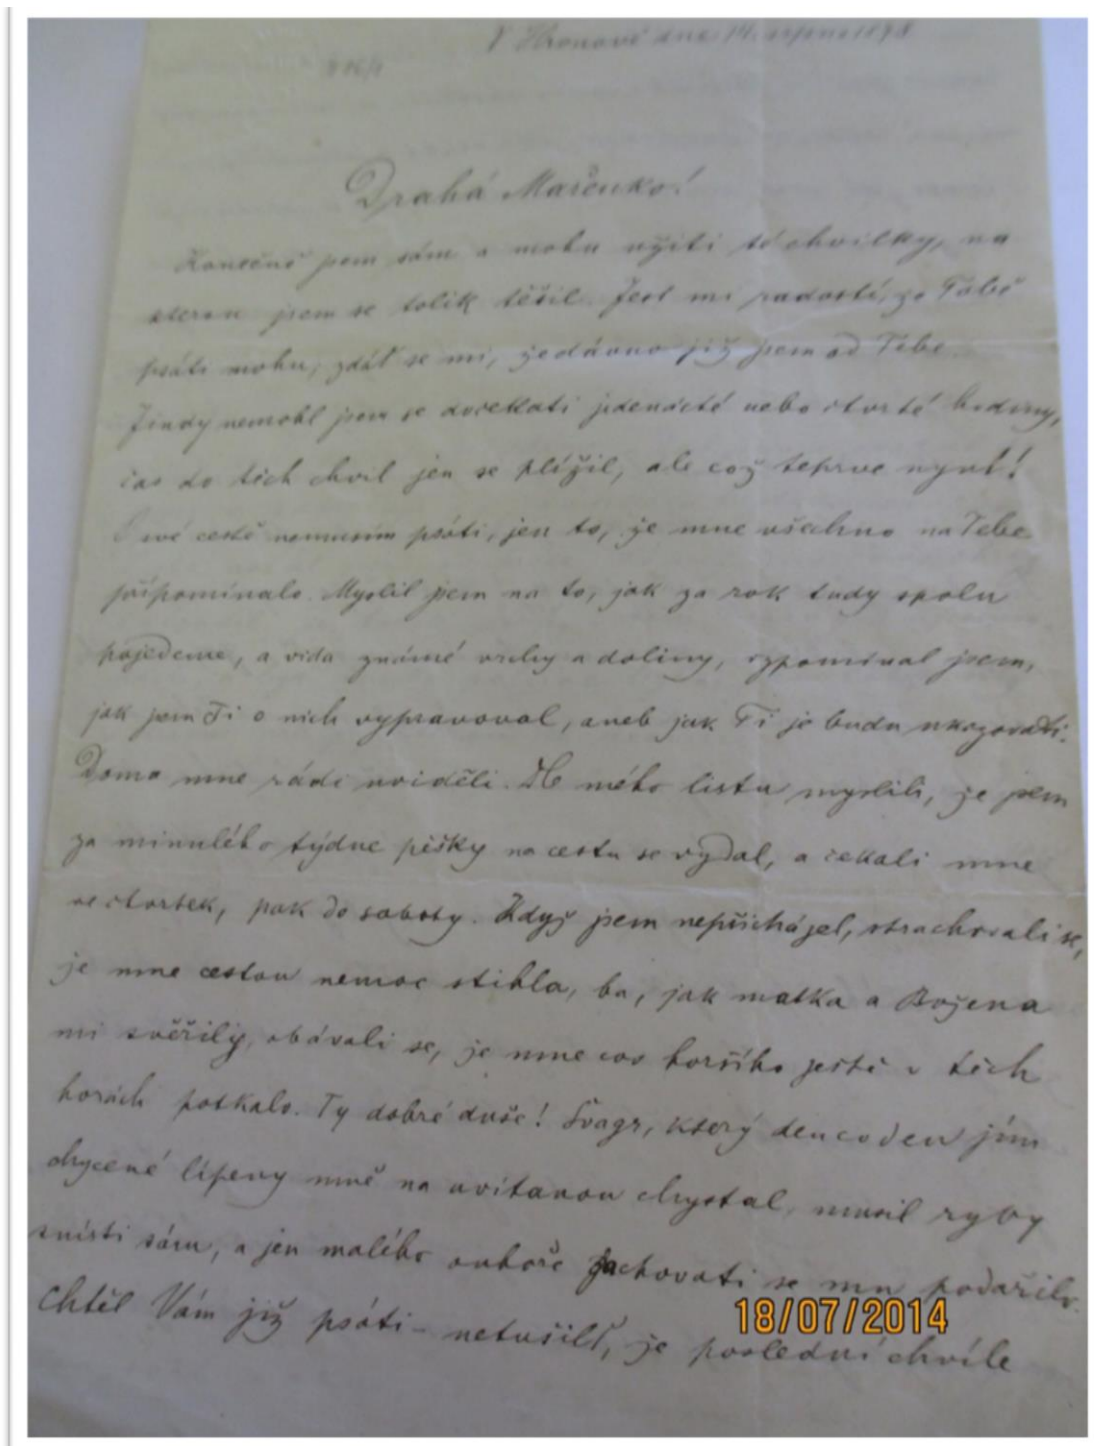 V Hronově dne 14. srpna 1878
Drahá Mařenko!
Konečně jsem sám a mohu užíti té chvilky, na
kterou jsem se tolik těšil. Jest mi radostí, že Tobě
psáti mohu, zdáť se mi, že dávno již jsem od Tebe.
Jindy nemohl jsem se dočekati jedenácté nebo čtvrté hodiny,
čas do těch chvil jen se plížil, ale což teprve nyní!
O své cestě nemusím psáti, jen to, že mne všechno na Tebe
připomínalo. Myslil jsem na to, jak za rok tudy spolu
pojedeme, a vida známé vrchy a doliny, vzpomínal jsem,
jak jsem Ti o nich vypravoval, aneb jak Ti je budu ukazovati.
Doma mne rádi uviděli. Dle mého listu myslili, že jsem
za minulého týdne pěšky na cestu se vydal, a čekali mne
ve čtvrtek, pak do soboty. Když jsem nepřicházel, strachovali se,
že mne cestou nemoc stihla, ba, jak matka a Božena
mi svěřily, obávali se, že mne cos horšího ještě v těch
horách potkalo. Ty dobré duše! Švagr, který den co den jím
chycené lipeny mně na uvítanou chystal, musil ryby
snísti sám, a jen malého úhoře zachovati se mu podařilo.
Chtěl Vám již psáti – netušilť, že poslední chvíle
18/07/2014